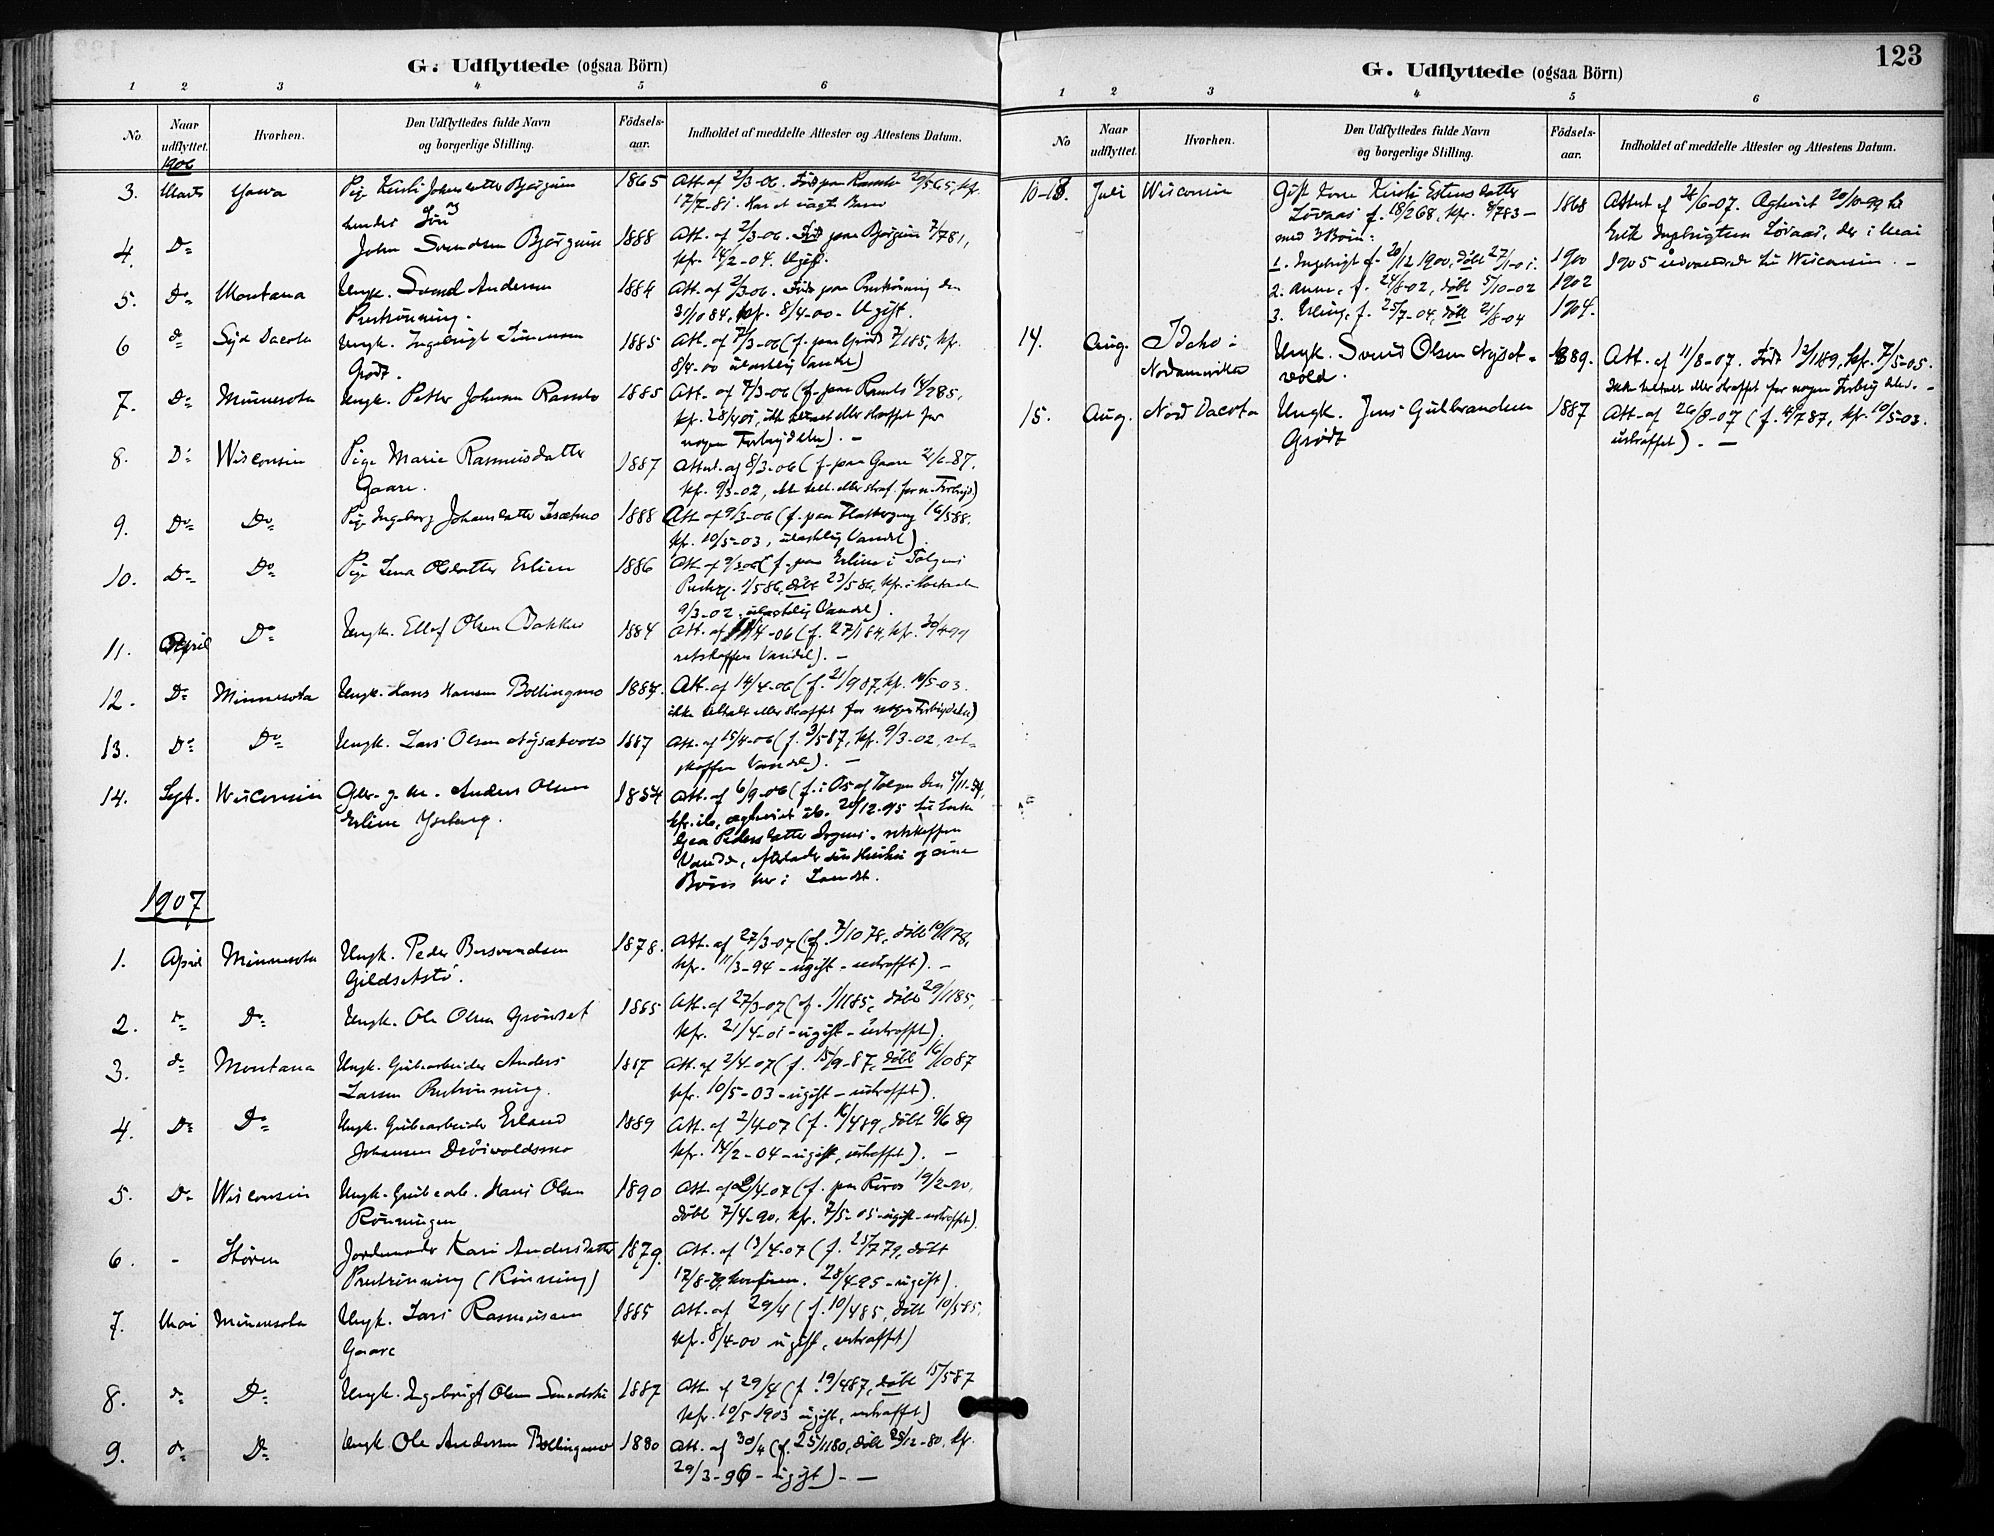 G. Udflyttede (ogsaa Börn)
1 2 3 4 5 6
No Naar udflyttet. Hvorhen. Den Udflyttedes fulde Navn og borgerlige Stilling. Födsels-aar. Indholdet af meddelte Attester og Attestens Datum.
1906
3. Marts Pige Johnsdatter Bjørgum 1865 Att. af 2/3-06. Født paa 29/5 65, kfr.
17/7-81. Har et uægte Barn
hendes Søn
4. Do John Svendsen Bjørgum 1888 Att. af 2/3-06. Født paa Bjørgum
kfr. 14/2-04. Ugift.
5. Do Montana Ungk. Svend Andersen 1884 Att. af 2/3-06. Født paa Prestrønning den
Prestrønning. 31/10 84, kfr. 8/4-00. Ugift.
6 do Syd Dacota Ungk. Ingebrigt 1885 Att. af 7/3-06 (f. paa Grødt kfr.
Grødt. 8/4-00 ulastelig Vandel)
7. Do Minnesota Ungk. Petter Johnsen 1885 Att. af 7/3-06 (f. paa 14/2 85,
kfr. ikke tiltalt eller straffet for
nogen Forbrydelse). -
8. Do Wisconsin Pige Marie Rasmusdatter 1887 Attest af 8/3-06 (f. paa Gaare 21/6-87,
Gaare. kfr. 9/3-02, ikke tilt. eller straf. for n. Forbryd)
9. Do Do Pige Ingeborg Johansdatter 1888 Att. af 9/3-06 (f. paa 16/5 88,
kfr. 10/5-03, ulastelig Vandel).
10. Do Do Pige Lena Olsdatter Erlien 1886 Att. af 9/3 06 (f. paa Erlien i Tolgens
Prestegj. 1/5 86, døbt 23/5 86, kfr. i
9/3-02, ulastelig Vandel).
11. April Do Ungk. Ellef Olsen Bakken 1884 Att. af 11/4-06 (f. 27/1 84, kfr. 30/4 99
retskaffen Vandel). -
12. Do Minnesota Ungk. Hans Hansen Bollingmo 1887. Att. af 14/4-06 (f. 21/9 87, kfr. 10/5-03.
ikke tiltalt eller straffet for nogen Forbrydelse)
13. Do Do Ungk. Lars Olsen Nysætvold 1887 Att. af 15/4-06 (f. 3/5 87, kfr. 9/3-02, ret-
skaffen Vandel). -
14. Sept. Wisconsin Anders Olsen 1854 Att. af 6/9-06 (f. i Os af Tolgen den 5/11-54,
Erlien kfr. ib, ægteviet ib. 12-95 til
Pedersdatter retskaffen
Vandel, efterlader sin Hustru og sine
Børn her i Landet.
1907
1. April Minnesota Ungk. Peder Bersvendsen 1878. Att. af 27/3-07 (f. 7/10 78, døbt 10/11 78,
Gildsetstø. kfr. 11/3-94 - ugift - ustraffet). -
2. do Do Ungk. Ole Olsen Grønset 1885 Att. af 27/3-07 (f. 1/11 85, døbt 29/11 85,
kfr. 21/4-01 - ugift - ustraffet).
3. do Montana Ungk. Grubearbeider Anders 1887 Att. af 2/4-07 (f. 15/9-87, døbt 16/10 87
Larsen Prestrønning. kfr. 10/5-03 - ugift - ustraffet).
4. Do Do Ungk. Grubearbeider Erland 1889 Att. af 2/4-07 (f. 16/4 89, døbt 9/6 89
Johansen Drøivoldsmo kfr. 14/2-04 - ugift, ustraffet). -
5. Do Wisconsin Ungk. Grubearb. Hans Olsen 1890 Att. af 2/4-07 (f. paa Røros 19/2-90,
Rønningen døbt 7/4-90, kfr. 7/5-05 - ugift - ustraffet).
6. - Støren Jordemoder Kari Andersdatter 1879. Att. af 13/4-07 (f. 25/7 79, døbt
Prestrønning (Rønning) 17/8-79, konfirm. 28/4-95 - ugift).
7. Mai Minnesota Ungk. Lars Rasmussen 1885 Att. af 29/4 (f. 10/4 85, døbt 10/5 85,
Gaare kfr. 8/4-00 ugift, ustraffet)
8. do Do Ungk. Ingebrigt Olsen 1887 Att. af 29/4 (f. 19/4 87, døbt 15/5 87
kfr. 10/5 1903 ugift, ustraffet)
9. do Do Ungk. Ole Andersen Bollingmo 1880 Att. af 30/4 (f. 25/11 80, døbt 12-80, kfr.
29/3-96 - ugift). -
123
G. Udflyttede (ogsaa Börn)
1 2 3 4 5 6
No Naar udflyttet. Hvorhen. Den Udflyttedes fulde Navn og borgerlige Stilling. Födsels-aar. Indholdet af meddelte Attester og Attestens Datum.
10-13. Juli Wisconsin Gift Kone Kirsti Estensdatter 1868 Attest af 6-07. Ægteviet 20/10-99 til
Løvaas f. 18/2 68, kfr. 8/7 83 - Erik Ingebrigtsen Løvaas, der i Mai
med 3 Børn: 1905 udvandrede til Wisconsin. -
1. Ingebrigt f. 12 1900, døbt 27/1-01. 1900
2. Anne, f. 24/8-02, døbt 5/10-02 1902
3. Erling, f. 25/7-04, døbt 21/8-04 1904.
14. Aug. Idaho i Ungk. Svend Olsen Nyset- 1889. Att. af 11/8-07. Født 12/11 89, kfr. 7/5-05.
Nordamerika vold. Ikke tiltalt eller straffet for nogen Forbrydelse. -
15. Aug. Nord Dacota Ungk. Jens Gulbrandsen 1887 Att. af 26/8-07 (f. 4/7 87, kfr. 10/5-03.
Grødt ustraffet). -